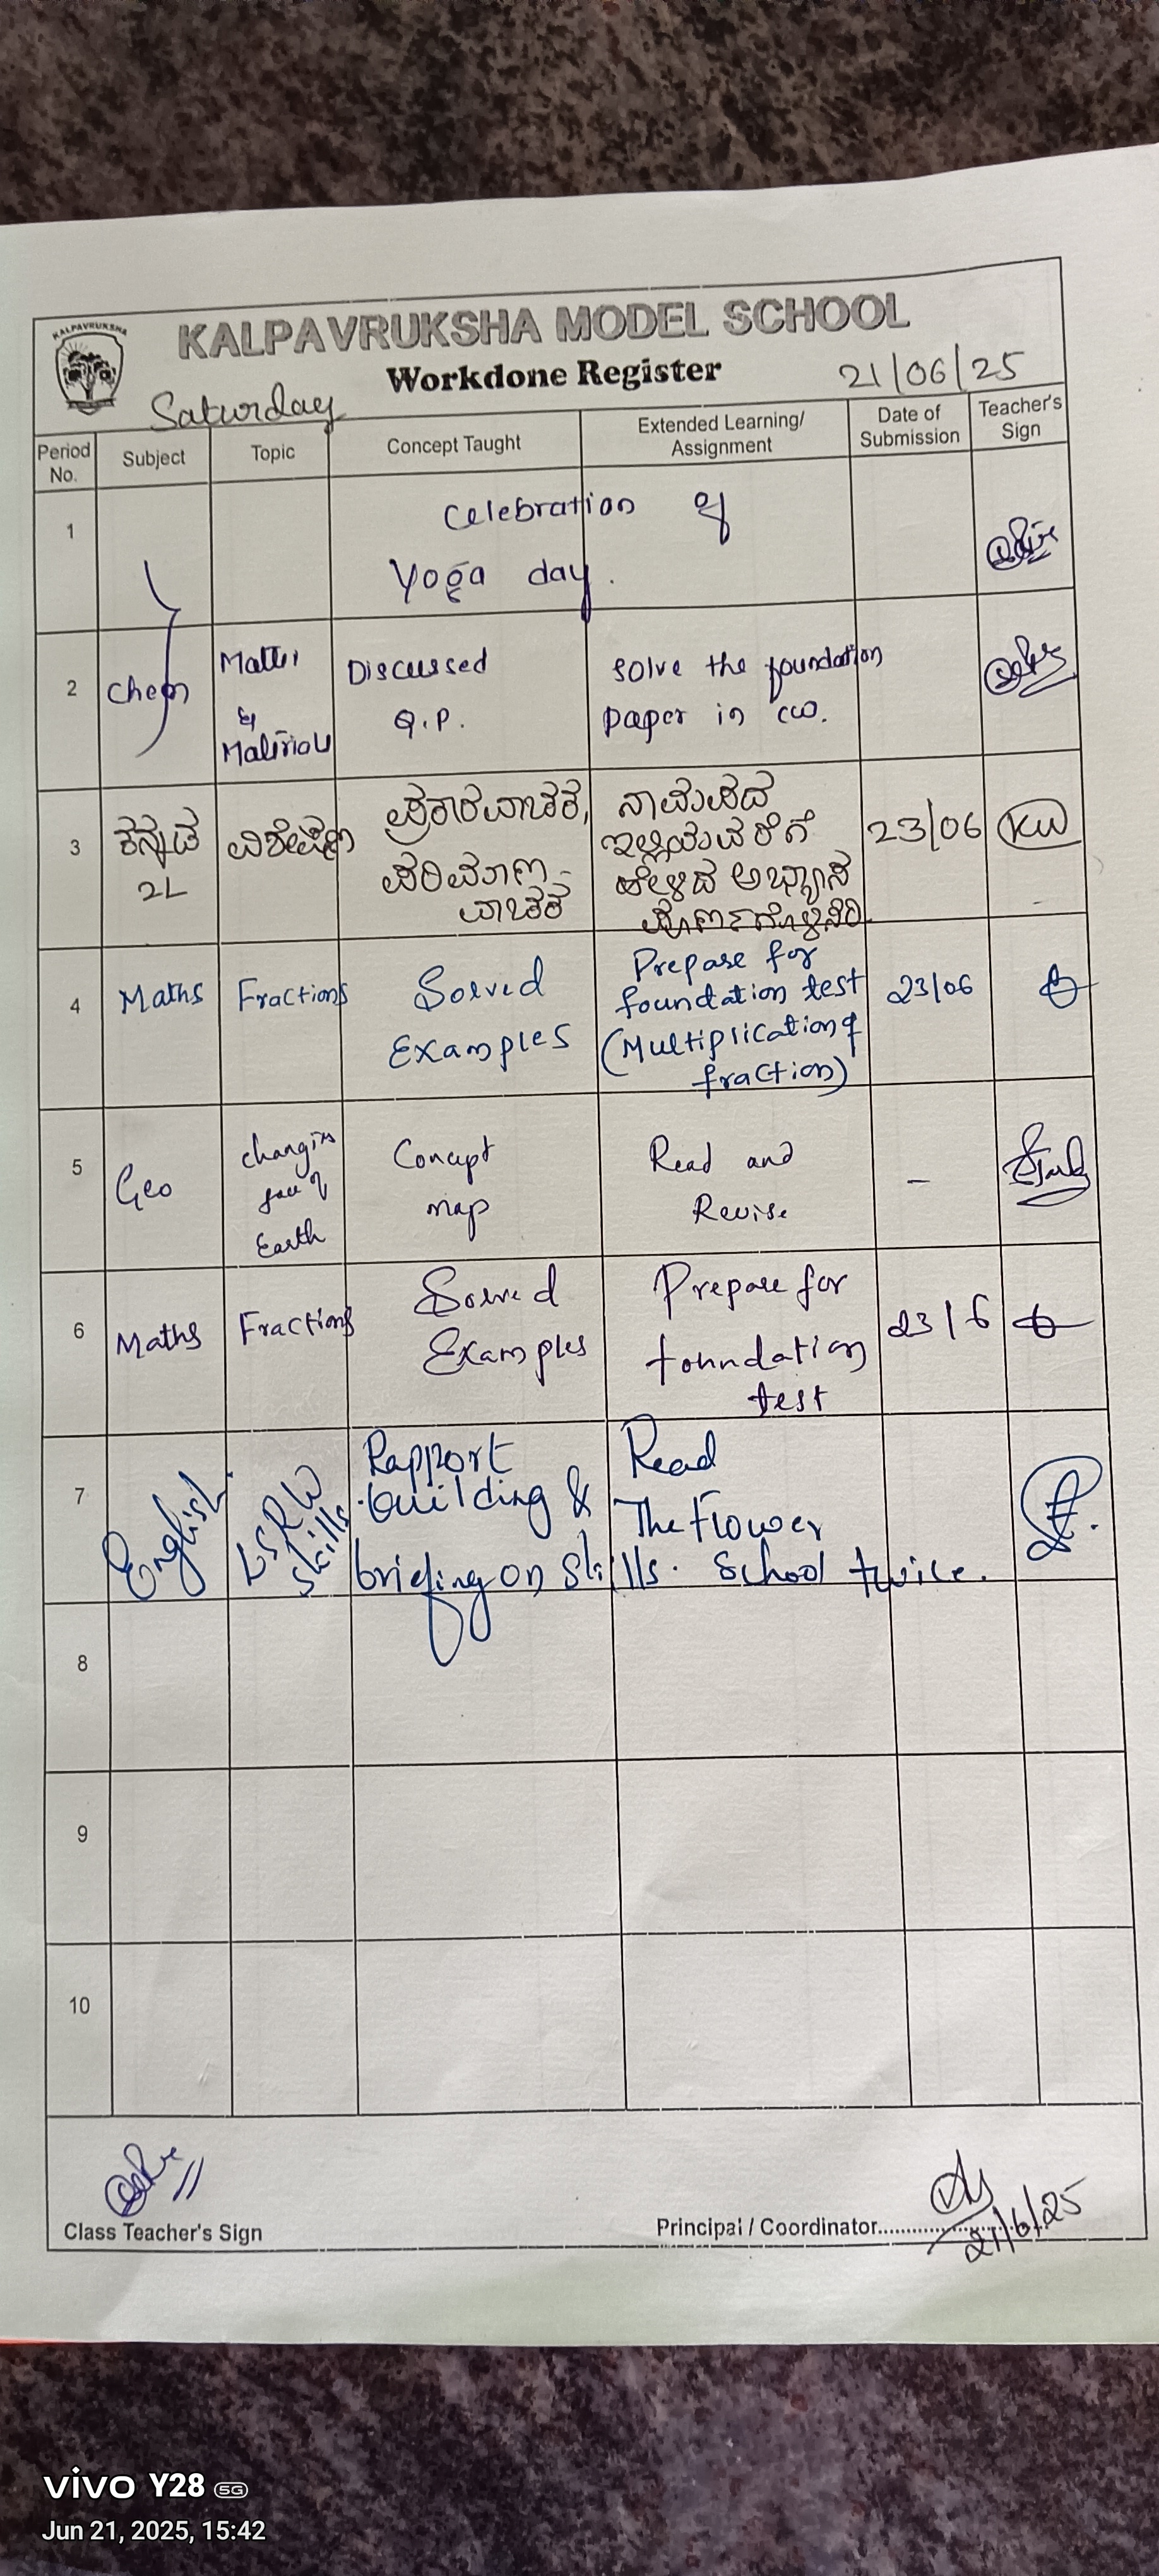 KALPAVRUKSHA
KALPAVRUKSHA MODEL SCHOOL
Workdone Register
Saturday
21/06/25
Period No.
Subject
Topic
Concept Taught
Extended Learning/ Assignment
Date of Submission
Teacher's Sign
1
Celebration of
Yoga day.
2
Chem
Matter
&
Materials
Discussed
Q.P.
solve the foundation
paper in cw.
3
ಕನ್ನಡ
2L
ವಿಶೇಷಣ
ಪ್ರಕಾರವಾಚಕ,
ಪರಿಮಾಣ-
ವಾಚಕ
ನಾಮಪದ
ಇಲ್ಲಿಯವರೆಗೆ
ಹೇಳಿದ ಅಭ್ಯಾಸ
ಪೂರ್ಣಗೊಳಿಸಿರಿ
23/06
KW
4
Maths
Fractions
Solved
Examples
Prepare for
foundation test
(Multiplication of
fraction)
23/06
5
Geo
changing
face of
Earth
Concept
map
Read and
Revise
-
6
Maths
Fractions
Solved
Examples
Prepare for
foundation
test
23/6
7
English
LSRW
skills
Rapport
building &
briefing on skills.
Read
The Flower
School twice.
8
9
10
Class Teacher's Sign
Principal / Coordinator
21/6/25
vivo Y28 5G
Jun 21, 2025, 15:42